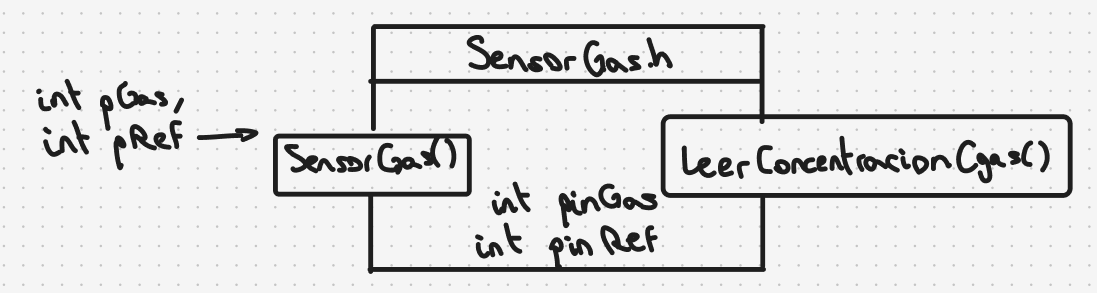 SensorGas.h
int pGas,
int pRef
SensorGas()
LeerConcentracionCgas()
int pinGas
int pinRef